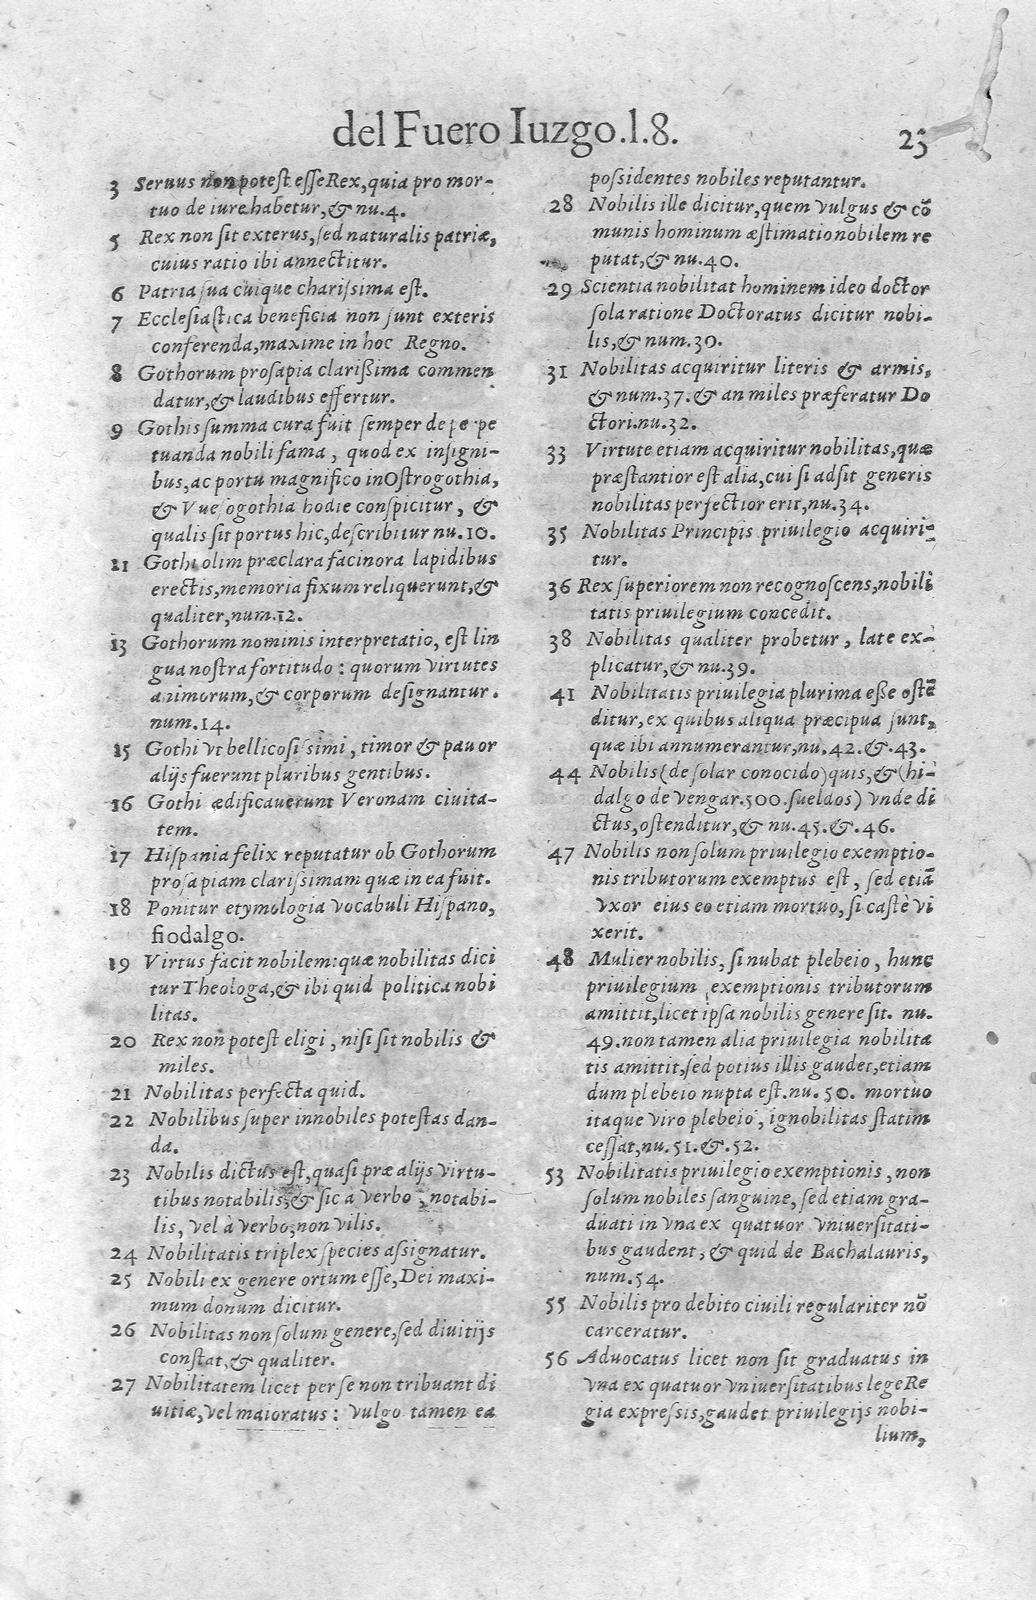 del Fuero Iuzgo.l.8.
23
3 Seruus non potest esse Rex, quia pro mor-
tuo de iure habetur, & nu.4.
5 Rex non sit exterus, sed naturalis patriæ,
cuius ratio ibi annectitur.
6 Patria sua cuique charissima est.
7 Ecclesiastica beneficia non sunt exteris
conferenda, maxime in hoc Regno.
8 Gothorum prosapia clarissima commen
datur, & laudibus effertur.
9 Gothis summa cura fuit semper de perpe
tuanda nobili fama, quod ex insigni-
bus, ac portu magnifico in Ostrogothia,
& Vuesogothia hodie conspicitur, &
qualis sit portus hic, describitur nu.10.
11 Gothi olim præclara facinora lapidibus
erectis, memoria fixum reliquerunt, &
qualiter, num.12.
13 Gothorum nominis interpretatio, est lin
gua nostra fortitudo: quorum virtutes
animorum, & corporum designantur.
num.14.
15 Gothi vt bellicosissimi, timor & pauor
alijs fuerunt pluribus gentibus.
16 Gothi ædificauerunt Veronam ciuita-
tem.
17 Hispania felix reputatur ob Gothorum
prosapiam clarissimam quæ in ea fuit.
18 Ponitur etymologia vocabuli Hispano,
fiodalgo.
19 Virtus facit nobilem: quæ nobilitas dici
tur Theologa, & ibi quid politica nobi
litas.
20 Rex non potest eligi, nisi sit nobilis &
miles.
21 Nobilitas perfecta quid.
22 Nobilibus super innobiles potestas dan-
da.
23 Nobilis dictus est, quasi præ alijs virtu-
tibus notabilis, & sic a verbo, notabi-
lis, vel à verbo, non vilis.
24 Nobilitatis triplex species assignatur.
25 Nobili ex genere ortum esse, Dei maxi-
mum donum dicitur.
26 Nobilitas non solum genere, sed diuitijs
constat, & qualiter.
27 Nobilitatem licet per se non tribuant di
uitiæ, vel maioratus: vulgo tamen ea
possidentes nobiles reputantur.
28 Nobilis ille dicitur, quem vulgus & cõ
munis hominum æstimatio nobilem re
putat, & nu.40.
29 Scientia nobilitat hominem ideo doctor
sola ratione Doctoratus dicitur nobi-
lis, & num.30.
31 Nobilitas acquiritur literis & armis,
& num.37. & an miles præferatur Do
ctori.nu.32.
33 Virtute etiam acquiritur nobilitas, quæ
præstantior est alia, cui si adsit generis
nobilitas perfectior erit, nu.34.
35 Nobilitas Principis priuilegio acquiri-
tur.
36 Rex superiorem non recognoscens, nobili
tatis priuilegium concedit.
38 Nobilitas qualiter probetur, late ex-
plicatur, & nu.39.
41 Nobilitatis priuilegia plurima esse ostẽ
ditur, ex quibus aliqua præcipua sunt,
quæ ibi annumerantur, nu.42.&.43.
44 Nobilis (de solar conocido) quis, & (hi-
dalgo de vengar.500.sueldos) vnde di
ctus, ostenditur, & nu.45.&.46.
47 Nobilis non solum priuilegio exemptio-
nis tributorum exemptus est, sed etiã
vxor eius eo etiam mortuo, si castè vi
xerit.
48 Mulier nobilis, si nubat plebeio, hunc
priuilegium exemptionis tributorum
amittit, licet ipsa nobilis genere sit. nu.
49. non tamen alia priuilegia nobilita
tis amittit, sed potius illis gaudet, etiam
dum plebeio nupta est. nu.50. mortuo
itaque viro plebeio, ignobilitas statim
cessat, nu.51.&.52.
53 Nobilitatis priuilegio exemptionis, non
solum nobiles sanguine, sed etiam gra-
duati in vna ex quatuor vniuersitati-
bus gaudent, & quid de Bachalauris,
num.54.
55 Nobilis pro debito ciuili regulariter nõ
carceratur.
56 Aduocatus licet non sit graduatus in
vna ex quatuor vniuersitatibus lege Re
gia expressis, gaudet priuilegijs nobi-
lium,